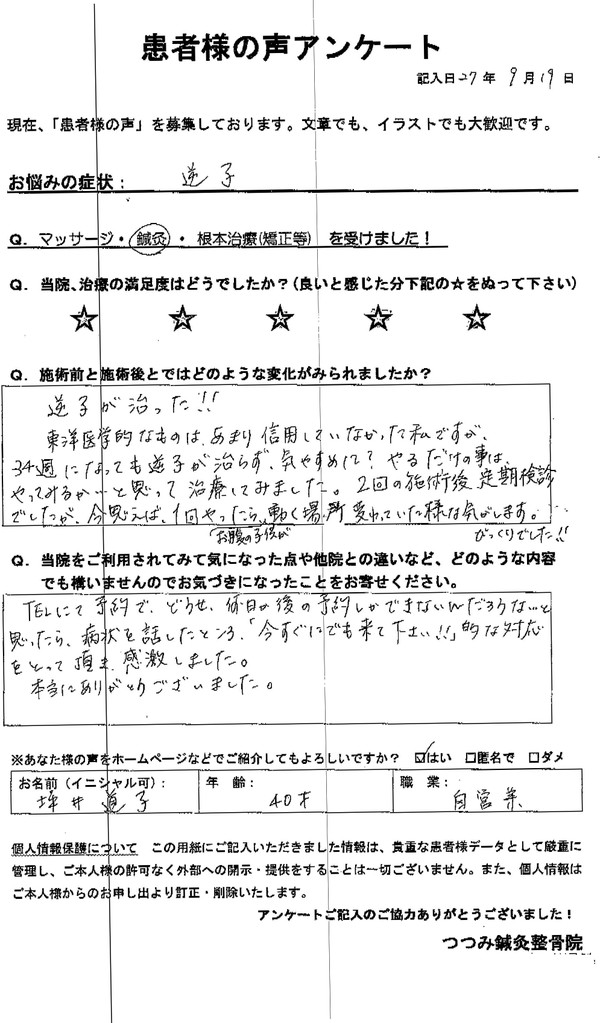 患者様の声アンケート
記入日27年 9月19日
現在、「患者様の声」を募集しております。文章でも、イラストでも大歓迎です。
お悩みの症状： 逆子
Q．マッサージ・鍼灸・根本治療(矯正等) を受けました！
Q．当院、治療の満足度はどうでしたか？(良いと感じた分下記の☆をぬって下さい)
☆ ☆ ☆ ☆ ☆
Q．施術前と施術後とではどのような変化がみられましたか？
逆子が治った!!
東洋医学的なものは、あまり信用していなかった私ですが、
34週になっても逆子が治らず、気やすめに？やるだけの事は、
やってみるか…と思って治療してみました。2回の施術後、定期検診
でしたが、今思えば、1回やったら、動く場所変わっていた様な気がします。…
お腹の子供が
びっくりでした!!
Q．当院をご利用されてみて気になった点や他院との違いなど、どのような内容
でも構いませんのでお気づきになったことをお寄せください。
TELにて予約で、どうせ、何日か後の予約しかできないんだろうな…と
思ったら、病状を話したところ、「今すぐにでも来て下さい!!」的な対応
をとって頂き、感激しました。
本当にありがとうございました。
※あなた様の声をホームページなどでご紹介してもよろしいですか？ ☑はい □匿名で □ダメ
お名前（イニシャル可）： 年 齢： 職 業：
坪井 子 40才 自営業
個人情報保護について この用紙にご記入いただきました情報は、貴重な患者様データとして厳重に
管理し、ご本人様の許可なく外部への開示・提供をすることは一切ございません。また、個人情報は
ご本人様からのお申し出より訂正・削除いたします。
アンケートご記入のご協力ありがとうございました！
つつみ鍼灸整骨院